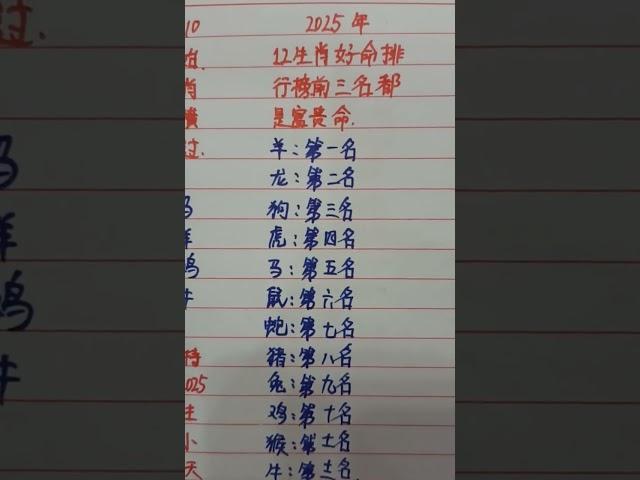 2025年
12生肖好命排
行榜前三名都
是富贵命.
羊:第一名
龙:第二名
狗:第三名
虎:第四名
马:第五名
鼠:第六名
蛇:第七名
猪:第八名
兔:第九名
鸡:第十名
猴:第十一名
牛:第十二名